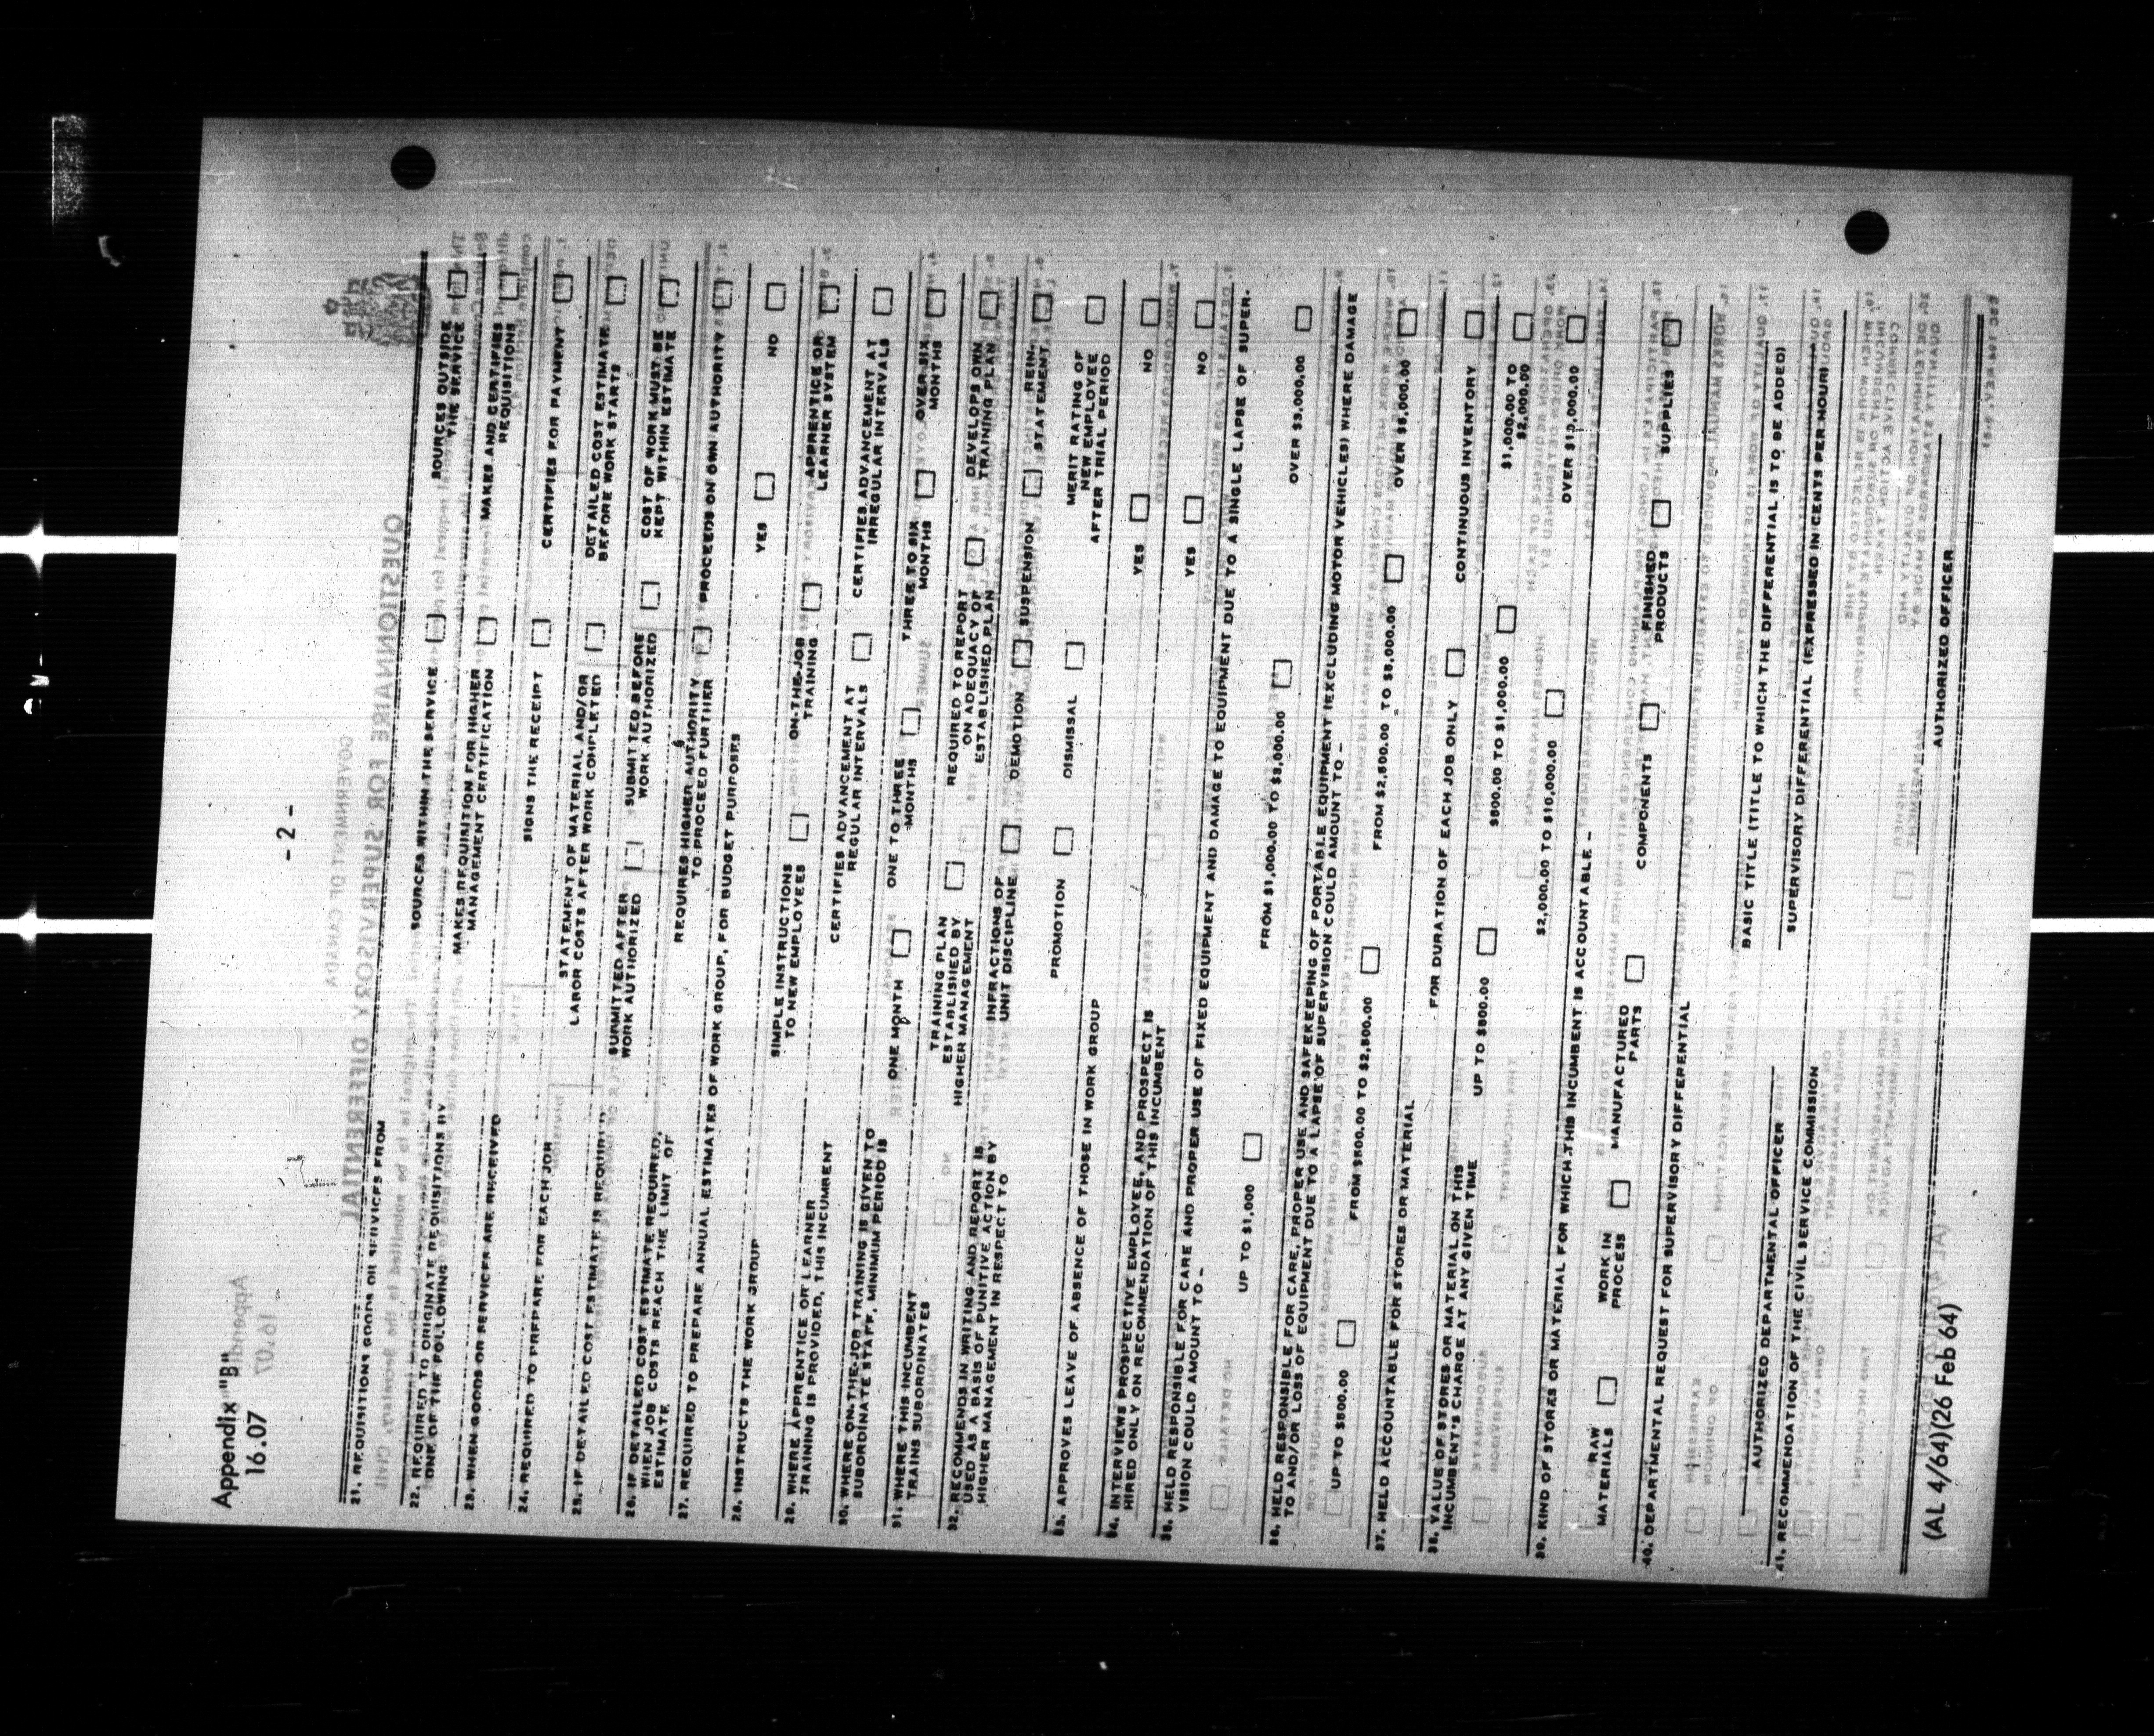 Appendix "B"
16.07
- 2 -
21. REQUISITIONS GOODS OR SERVICES FROM SOURCES WITHIN THE SERVICE □ SOURCES OUTSIDE THE SERVICE □
22. REQUIRED TO ORIGINATE REQUISITIONS BY
ONE OF THE FOLLOWING
MAKES REQUISITION FOR HIGHER
MANAGEMENT CERTIFICATION □
MAKES AND CERTIFIES
REQUISITIONS □
23. WHEN GOODS OR SERVICES ARE RECEIVED SIGNS THE RECEIPT □ CERTIFIES FOR PAYMENT □
24. REQUIRED TO PREPARE FOR EACH JOB
STATEMENT OF MATERIAL AND/OR
LABOR COSTS AFTER WORK COMPLETED □
DETAILED COST ESTIMATE
BEFORE WORK STARTS □
25. IF DETAILED COST ESTIMATE IS REQUIRED
SUBMITTED AFTER
WORK AUTHORIZED □
SUBMITTED BEFORE
WORK AUTHORIZED □
COST OF WORK MUST BE
KEPT WITHIN ESTIMATE □
26. IF DETAILED COST ESTIMATE REQUIRED,
WHEN JOB COSTS REACH THE LIMIT OF
ESTIMATE
REQUIRES HIGHER AUTHORITY
TO PROCEED FURTHER □
PROCEEDS ON OWN AUTHORITY □
27. REQUIRED TO PREPARE ANNUAL ESTIMATES OF WORK GROUP, FOR BUDGET PURPOSES YES □ NO □
28. INSTRUCTS THE WORK GROUP
SIMPLE INSTRUCTIONS
TO NEW EMPLOYEES □
ON-THE-JOB
TRAINING □
APPRENTICE OR
LEARNER SYSTEM □
29. WHERE APPRENTICE OR LEARNER
TRAINING IS PROVIDED, THIS INCUMBENT
CERTIFIES ADVANCEMENT AT
REGULAR INTERVALS □
CERTIFIES ADVANCEMENT AT
IRREGULAR INTERVALS □
30. WHERE ON-THE-JOB TRAINING IS GIVEN TO
SUBORDINATE STAFF, MINIMUM PERIOD IS
ONE MONTH □
ONE TO THREE
MONTHS □
THREE TO SIX
MONTHS □
OVER SIX
MONTHS □
31. WHERE THIS INCUMBENT
TRAINS SUBORDINATES
TRAINING PLAN
ESTABLISHED BY
HIGHER MANAGEMENT □
REQUIRED TO REPORT
ON ADEQUACY OF
ESTABLISHED PLAN □
DEVELOPS OWN
TRAINING PLAN □
32. RECOMMENDS IN WRITING AND REPORT IS
USED AS A BASIS OF PUNITIVE ACTION BY
HIGHER MANAGEMENT IN RESPECT TO
INFRACTIONS OF
UNIT DISCIPLINE □
DEMOTION □
SUSPENSION □
REIN-
STATEMENT □
PROMOTION □
DISMISSAL □
MERIT RATING OF
NEW EMPLOYEE
AFTER TRIAL PERIOD □
33. APPROVES LEAVE OF ABSENCE OF THOSE IN WORK GROUP YES □ NO □
34. INTERVIEWS PROSPECTIVE EMPLOYEE, AND PROSPECT IS
HIRED ONLY ON RECOMMENDATION OF THIS INCUMBENT YES □ NO □
35. HELD RESPONSIBLE FOR CARE AND PROPER USE OF FIXED EQUIPMENT AND DAMAGE TO EQUIPMENT DUE TO A SINGLE LAPSE OF SUPER-
VISION COULD AMOUNT TO -
UP TO $1,000 □ FROM $1,000.00 TO $3,000.00 □ OVER $3,000.00 □
36. HELD RESPONSIBLE FOR CARE, PROPER USE AND SAFEKEEPING OF PORTABLE EQUIPMENT (EXCLUDING MOTOR VEHICLES) WHERE DAMAGE
TO AND/OR LOSS OF EQUIPMENT DUE TO A LAPSE OF SUPERVISION COULD AMOUNT TO -
UP TO $500.00 □ FROM $500.00 TO $2,500.00 □ FROM $2,500.00 TO $5,000.00 □ OVER $5,000.00 □
37. HELD ACCOUNTABLE FOR STORES OR MATERIAL FOR DURATION OF EACH JOB ONLY □ CONTINUOUS INVENTORY □
38. VALUE OF STORES OR MATERIAL ON THIS
INCUMBENT'S CHARGE AT ANY GIVEN TIME
UP TO $500.00 □ $500.00 TO $1,000.00 □
$1,000.00 TO
$2,000.00 □
$2,000.00 TO $10,000.00 □ OVER $10,000.00 □
39. KIND OF STORES OR MATERIAL FOR WHICH THIS INCUMBENT IS ACCOUNTABLE -
RAW
MATERIALS □
WORK IN
PROCESS □
MANUFACTURED
PARTS □
COMPONENTS □
FINISHED
PRODUCTS □
SUPPLIES □
40. DEPARTMENTAL REQUEST FOR SUPERVISORY DIFFERENTIAL
AUTHORIZED DEPARTMENTAL OFFICER
BASIC TITLE (TITLE TO WHICH THE DIFFERENTIAL IS TO BE ADDED)
41. RECOMMENDATION OF THE CIVIL SERVICE COMMISSION
SUPERVISORY DIFFERENTIAL (EXPRESSED IN CENTS PER HOUR)
AUTHORIZED OFFICER
(AL 4/64)(26 Feb 64)